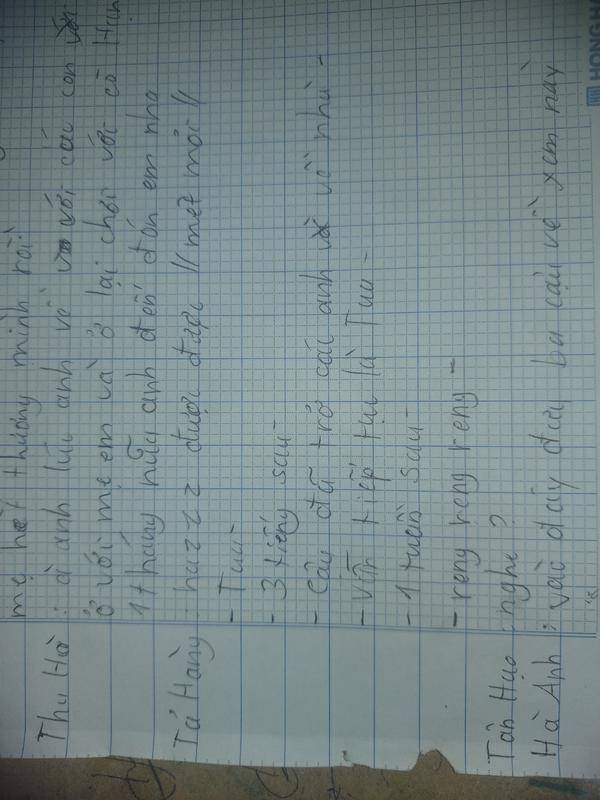 mẹ hết thương mình rồi
Thu Hà : à anh lúc anh về với các con
ở với mẹ em và ở lại chơi với cô Hạnh
1 tháng nữa anh đến đón em nha
Tá Hàng : hazzz được được // mệt mỏi //
- Tua -
- 3 tiếng sau -
- Cậu đã trở các anh về nhà -
- Vẫn tiếp tục là Tua -
- 1 tuần sau -
- reng reng reng -
Tân Hạo : nghe ?
Hà Anh : vào đây đây ba cậu về xem này
HONG HA